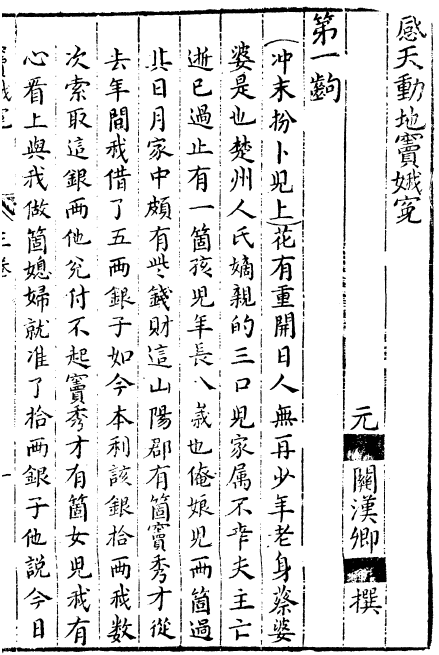 感天動地竇娥寃
元 關漢卿 撰
第一齣
(冲末扮卜児上)花有重開日人無再少年老身蔡婆
婆是也楚州人氏嫡親的三口児家属不幸夫主亡
逝已過止有一箇孩児年長八歲也俺娘児兩箇過
其日月家中頗有些錢財這山陽郡有箇竇秀才從
去年間我借了五兩銀子如今本利該銀拾兩我數
次索取這銀兩他兊付不起竇秀才有箇女児我有
心看上與我做箇媳婦就准了拾兩銀子他説今日